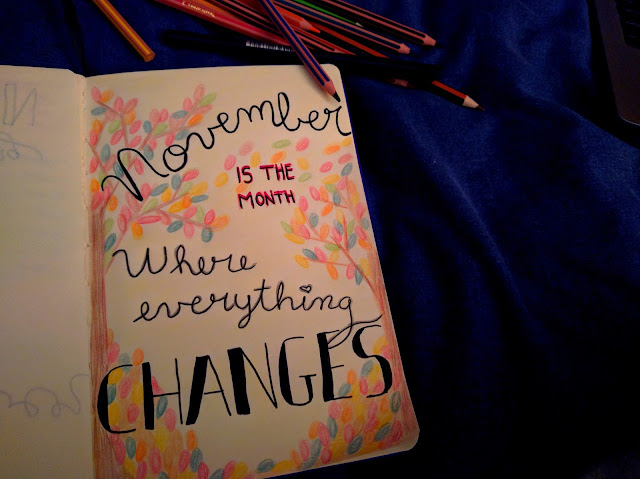 November
IS THE
MONTH
Where
everything
CHANGES